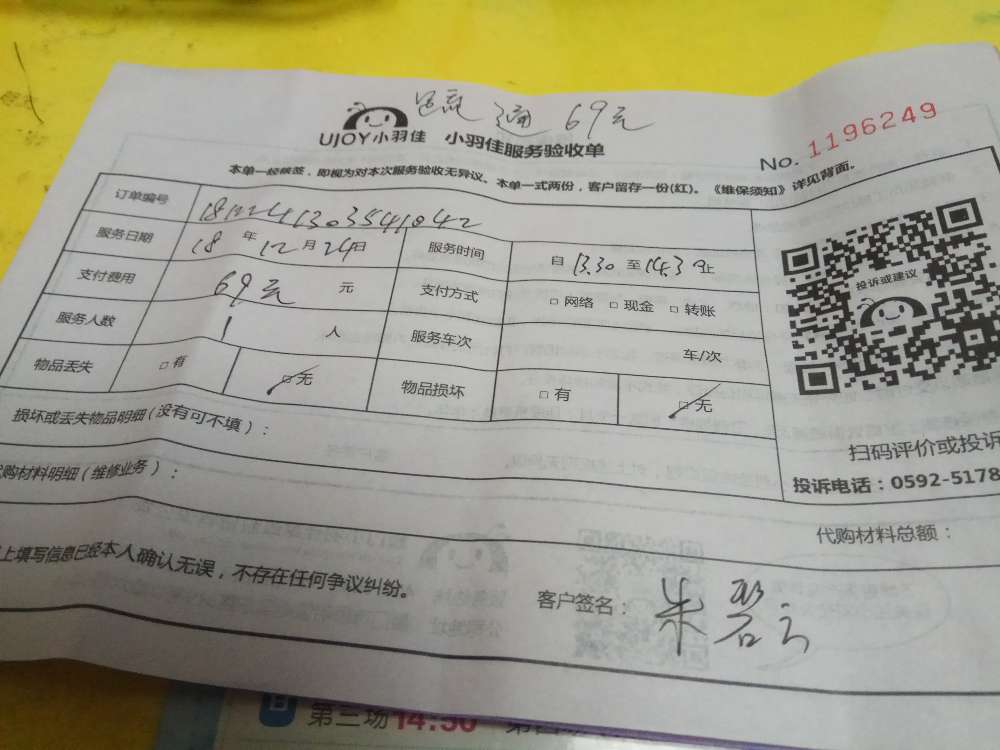 通 69元
UJOY小羽佳 小羽佳服务验收单
No. 1196249
本单一经核签，即视为对本次服务验收无异议。本单一式两份，客户留存一份(红)。《维保须知》详见背面。
订单编号
服务日期 18 年 12 月 24 日 服务时间 自 13.30 至 14.30 止
支付费用 69元 元 支付方式 □ 网络 □ 现金 □ 转账
服务人数 1 人 服务车次 车/次
物品丢失 □ 有 □ 无 物品损坏 □ 有 □ 无
投诉或建议
损坏或丢失物品明细(没有可不填)：
扫码评价或投诉
购材料明细(维修业务)：
投诉电话：0592-5178
代购材料总额：
上填写信息已经本人确认无误，不存在任何争议纠纷。
客户签名：朱碧云
B
第三场14:50